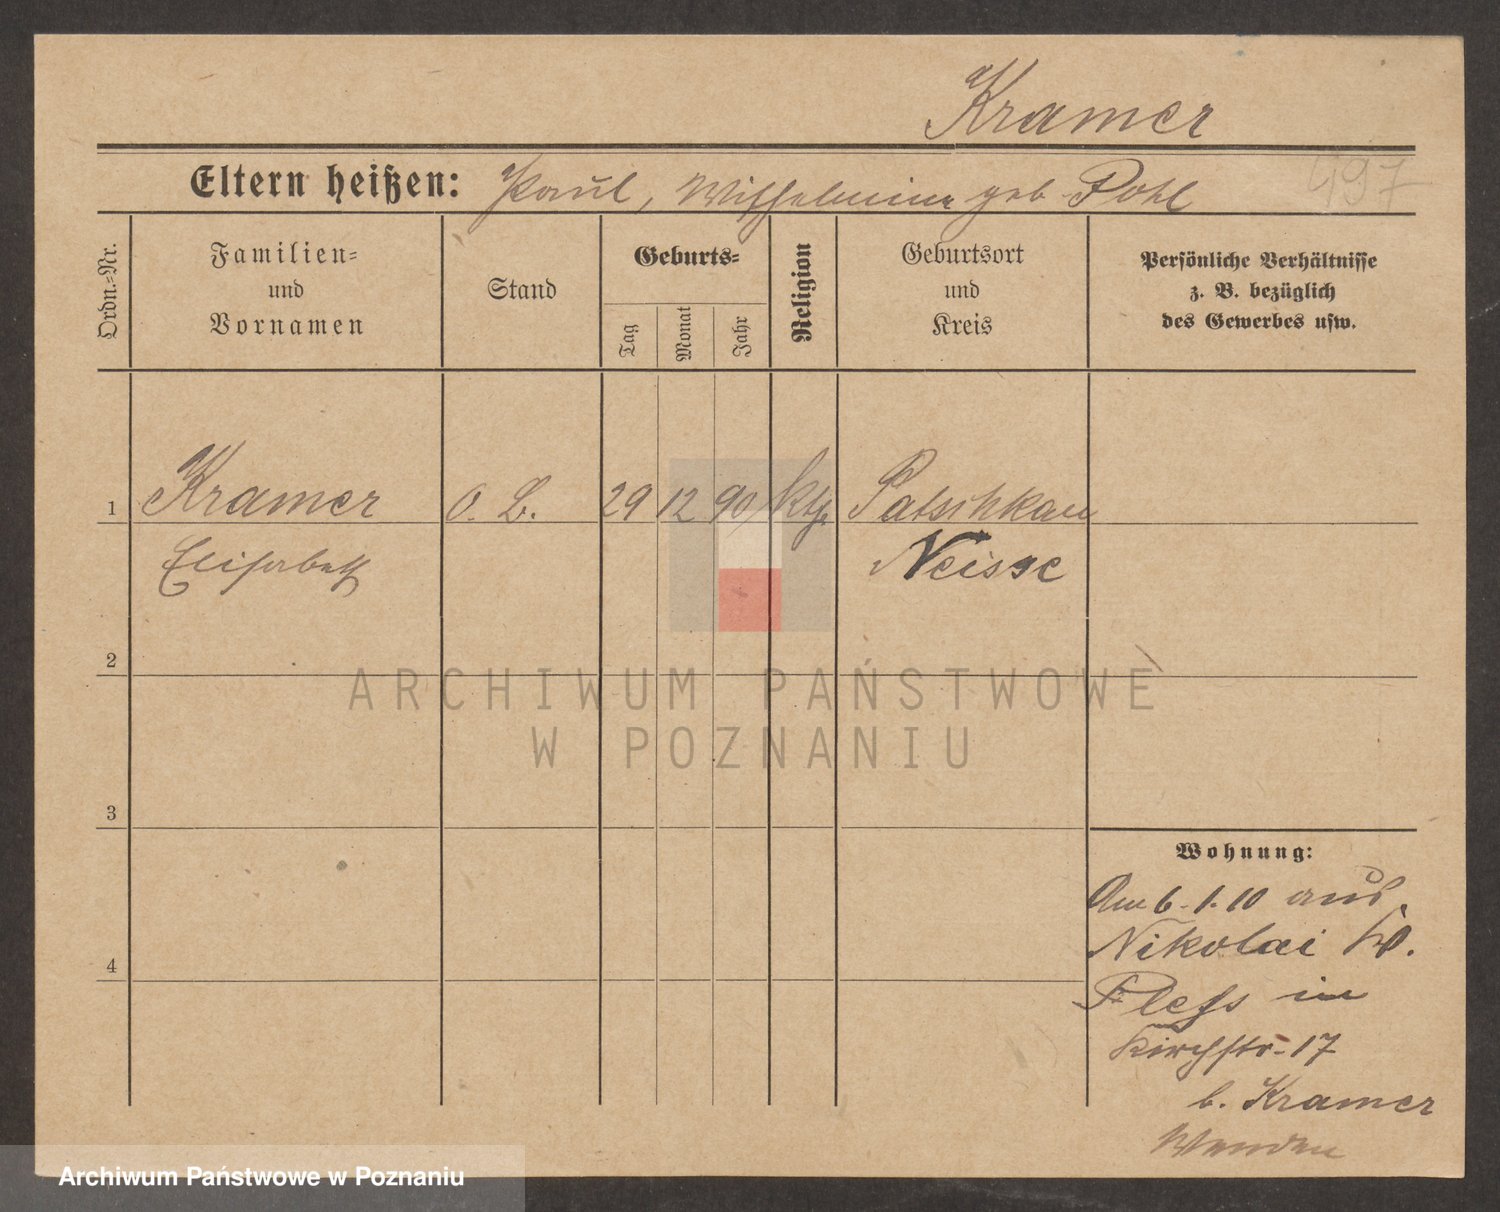 Kramer
497
Eltern heißen: Paul, Wilhelmine geb Pohl
Ordn.-Nr.
Familien-
und
Vornamen
Stand
Geburts-
Tag
Monat
Jahr
Religion
Geburtsort
und
Kreis
Persönliche Verhältnisse
z. B. bezüglich
des Gewerbes usw.
1 Kramer O. L. 29 12 90 kth. Patschkau
Elisabeth Neisse
2
ARCHIWUM PAŃSTWOWE
W POZNANIU
3
4
Wohnung:
Am 6.1.10 aus
Nikolai Kr.
Pleß in
Kirchstr. 17
b. Kramer
Archiwum Państwowe w Poznaniu